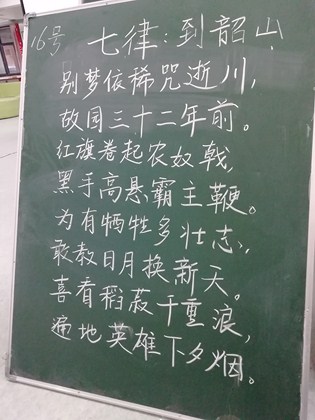 16号 七律:到韶山
别梦依稀咒逝川,
故园三十二年前。
红旗卷起农奴戟,
黑手高悬霸主鞭。
为有牺牲多壮志,
敢教日月换新天。
喜看稻菽千重浪,
遍地英雄下夕烟。